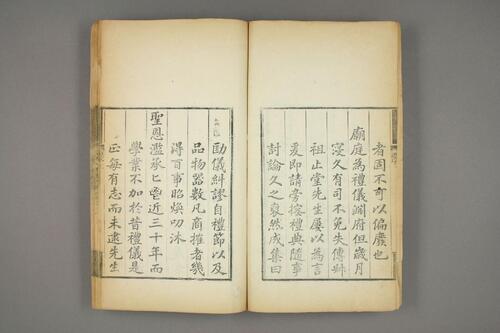 者固不可以偏廢也
廟庭為禮儀淵府但歲月
寖久有司不免失傳耕
祖止堂先生屢以為言
爰即請旁搜禮典隨事
討論久之裒然成集曰
勘儀糾謬自禮節以及
品物器數凡商搉者幾
得百事昭煥叨沐
聖恩濫承匕鬯近三十年而
學業不加於昔禮儀是
正每有志而未逮先生